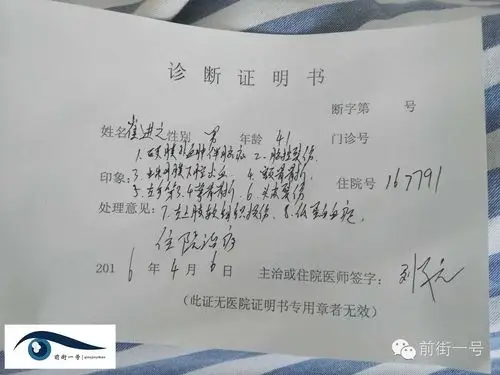 诊断证明书
断字第 号
姓名崔进之性别 男 年龄 41 门诊号
1. 硬膜外血肿伴脑疝 2. 脑挫裂伤
印象: 3. 蛛网膜下腔出血 4. 颅骨骨折 住院号 167791
5. 左手第3.4掌骨骨折 6. 头皮裂伤
处理意见: 7. 左上肢软组织损伤 8. 低蛋白血症
住院治疗
2016 年 4 月 6 日 主治或住院医师签字:
(此证无医院证明书专用章者无效)
前街一号
qianjieyihao
前街一号